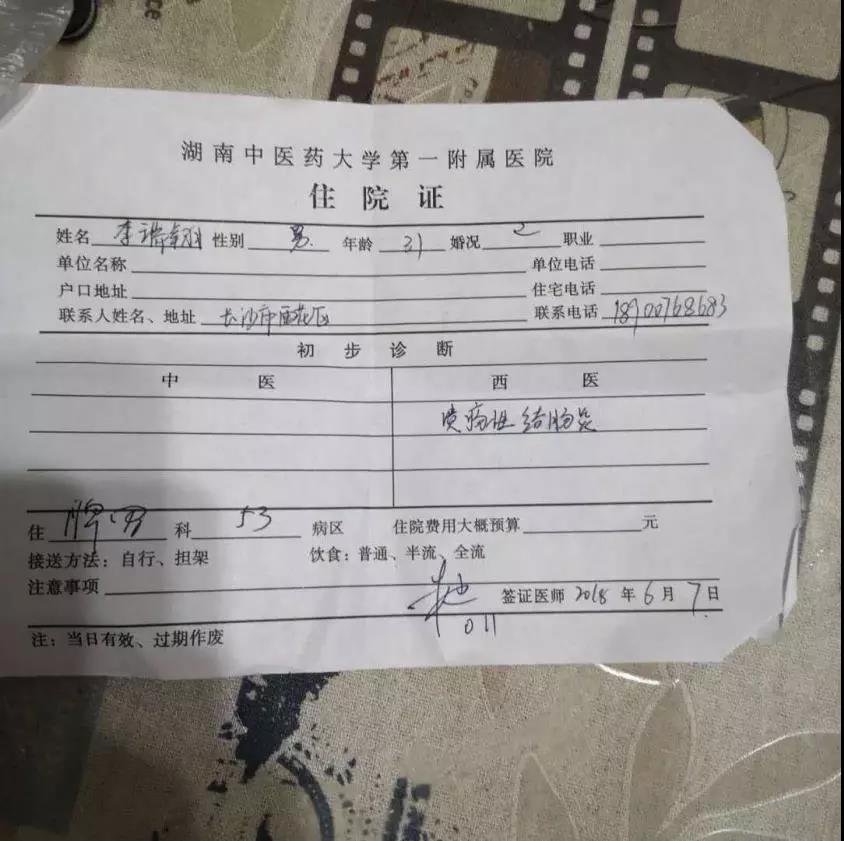 湖南中医药大学第一附属医院
住院证
姓名 李瑞 性别 男. 年龄 31 婚况 2 职业
单位名称 单位电话
户口地址 住宅电话
联系人姓名、地址 长沙市雨花区 联系电话 18900768683
初步诊断
中医 西医
溃疡性结肠炎
住 脾胃 科 53 病区 住院费用大概预算 元
接送方法：自行、担架 饮食：普通、半流、全流
注意事项 签证医师 2018 年 6 月 7 日
011
注：当日有效、过期作废